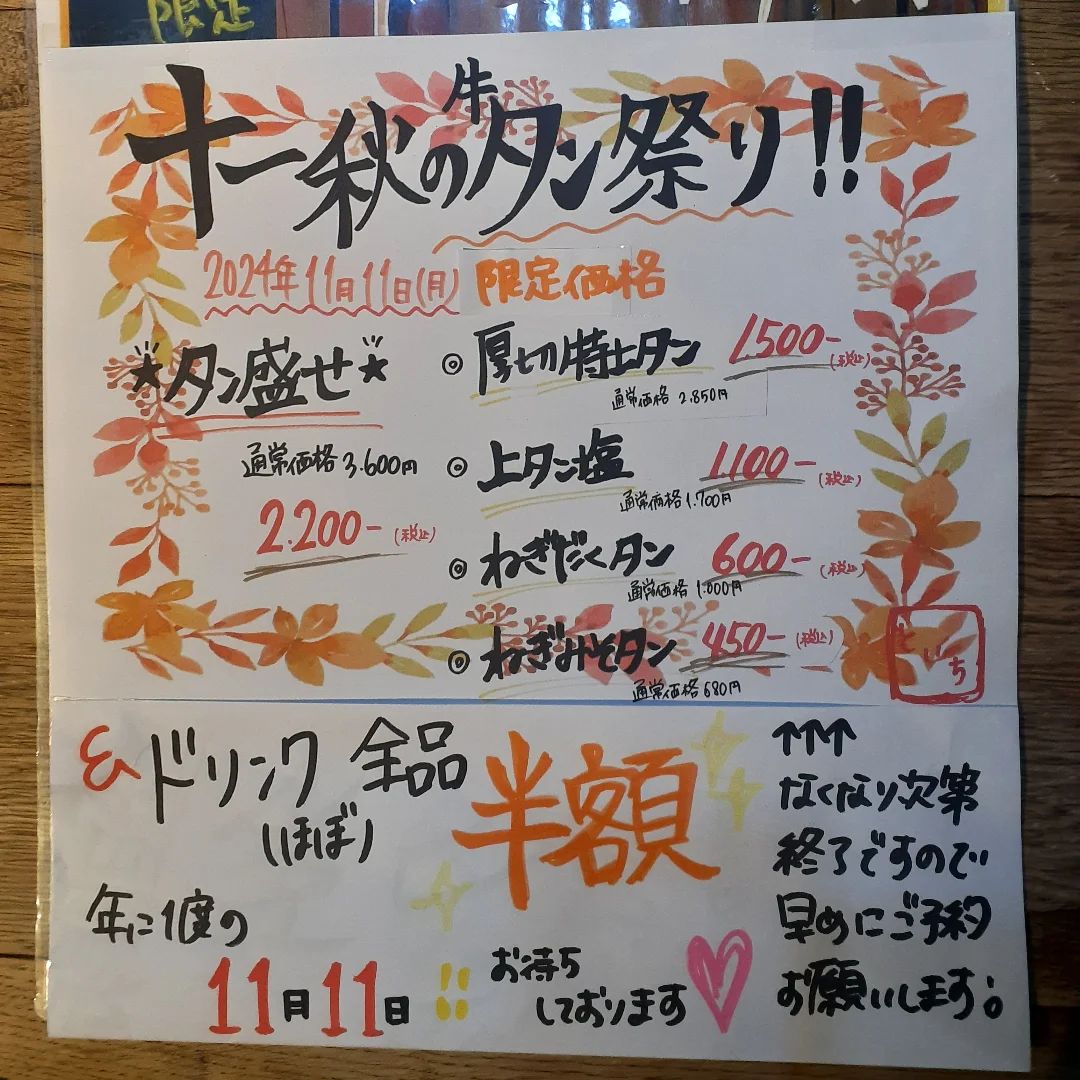 限定
十一秋の牛タン祭り!!
2024年11月11日(月) 限定価格
★タン盛せ★
通常価格3.600円
2.200-(税込)
◎ 厚切特上タン 1500-(税込)
通常価格 2.850円
◎ 上タン塩 1100-(税込)
通常価格1.700円
◎ ねぎだくタン 600-(税込)
通常価格 1.000円
◎ ねぎみそタン 450-(税込)
通常価格 680円
といち
& ドリンク 全品 半額
(ほぼ)
年に1度の
11月11日!!
お待ち
しております
↑↑↑
なくなり次第
終了ですので
早めにご予約
お願いします。